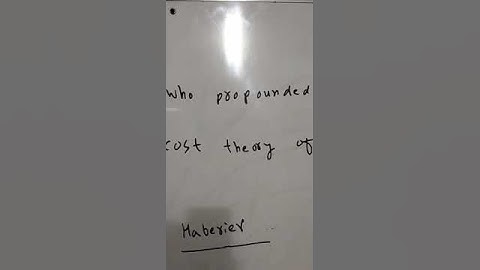 who propounded
cost theory of
Haberler